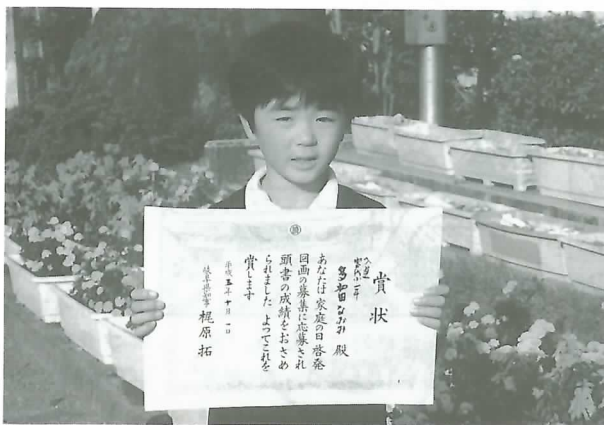 賞状
入選
多和田なおみ 殿
あなたは家庭の日啓発
図画の募集に応募され
頭書の成績をおさめ
られました よってこれを
賞します
平成五年十月一日
岐阜県知事 梶原拓